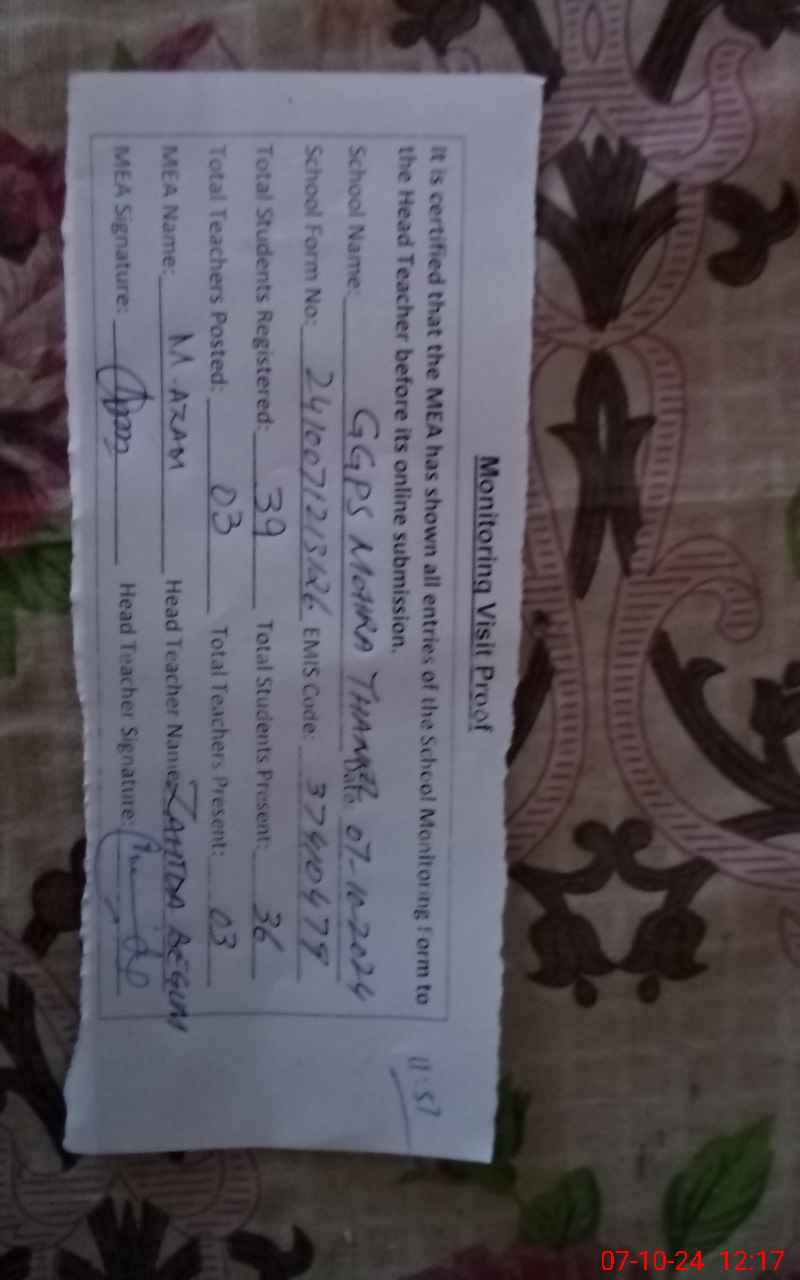 Monitoring Visit Proof
It is certified that the MEA has shown all entries of the School Monitoring Form to
the Head Teacher before its online submission.
11:57
School Name: GGPS MOHRA Date 07-10-2024
School Form No: EMIS Code: 37410479
Total Students Registered: 39 Total Students Present: 36
Total Teachers Posted: 03 Total Teachers Present: 03
MEA Name: M. AZAM Head Teacher Name: ZAHIDA BEGUM
MEA Signature: Head Teacher Signature:
07-10-24 12:17